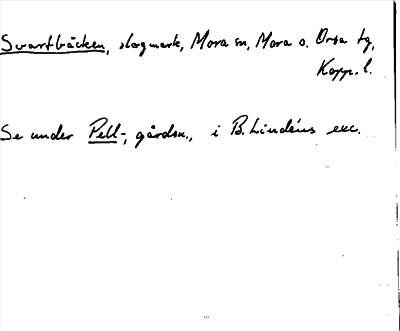 Svartbäcken, skogmark, Mora sn, Mora o. Orsa tg,
Kopp. l.
Se under Pell-, gårdsn., i B. Lindéns exc.